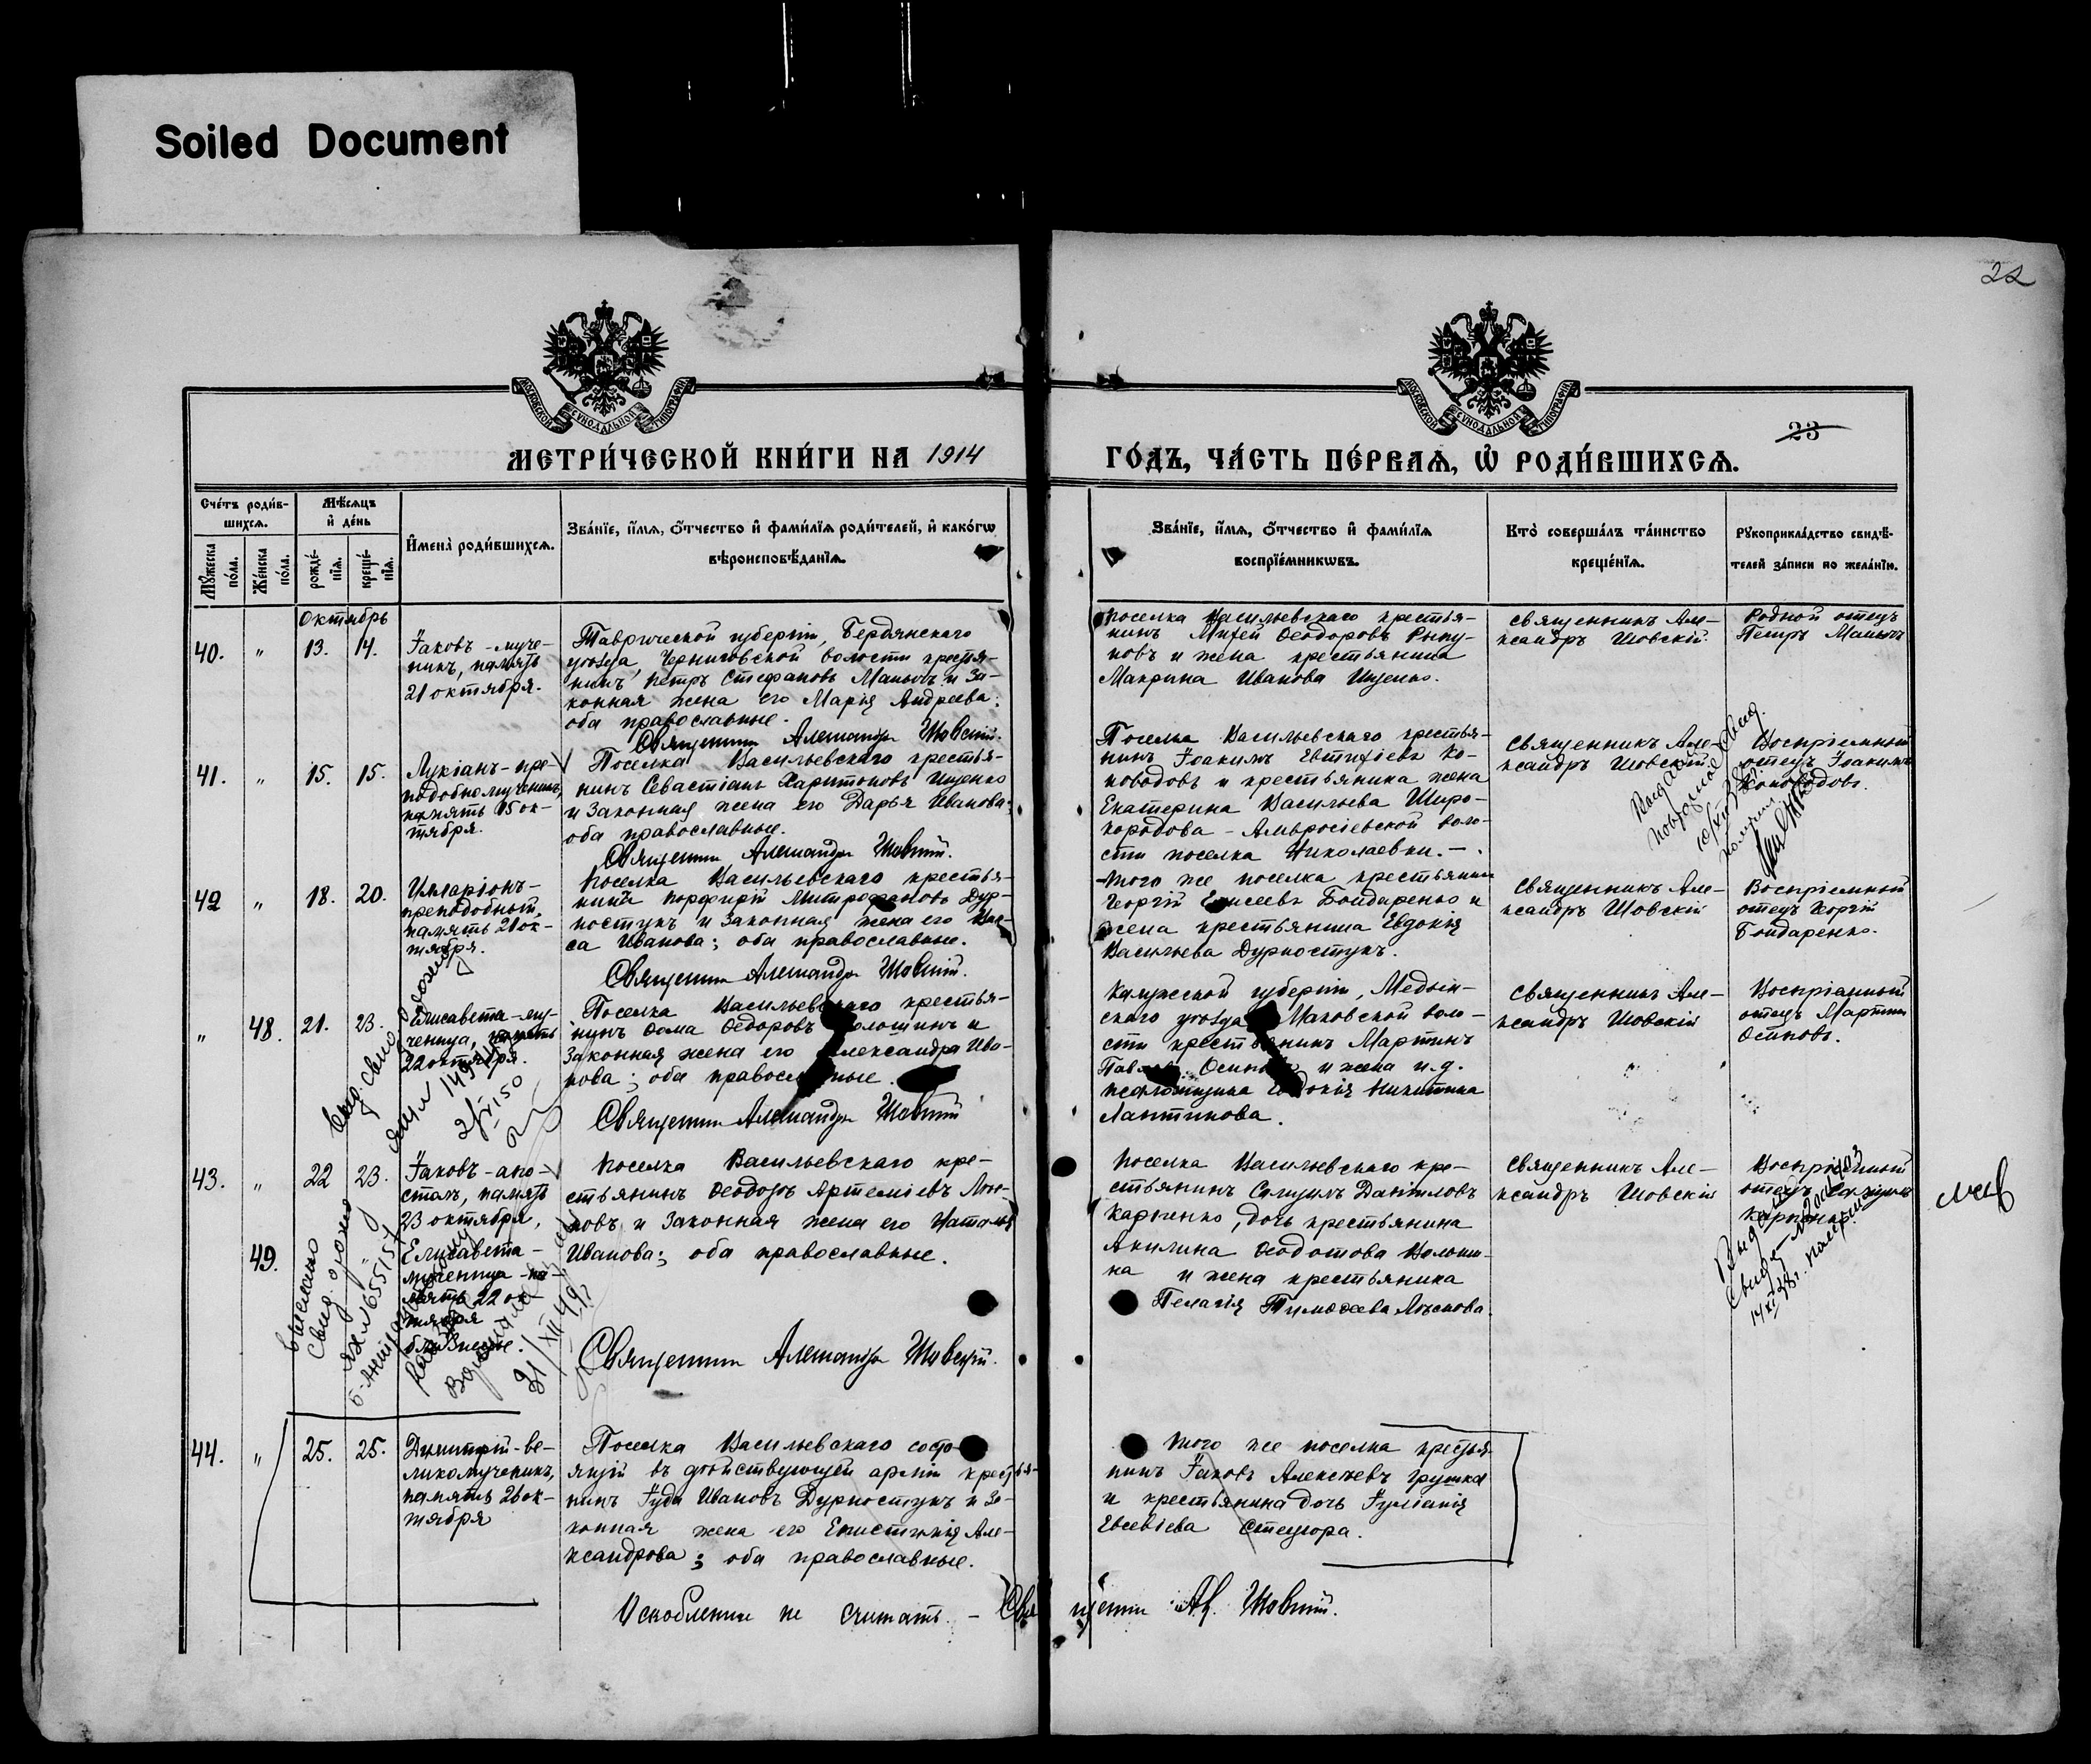 Soiled Document
22
МОСКОВСКОЙ СУНОДАЛЬНОЙ ТИПОГРАФІИ
МОСКОВСКОЙ СУНОДАЛЬНОЙ ТИПОГРАФІИ
МЕТРИ́ЧЕСКОЙ КНИ́ГИ НА 1914
23
ГО́ДЪ, ЧА́СТЬ ПЕ́РВАѦ, Ѡ҆ РОДИ́ВШИХСѦ.
Сче́тъ роди́в-
шихсѧ.
Мѣ́сѧцъ
и҆ де́нь
Мꙋ́жеска
по́ла.
Же́нска
по́ла.
рожде́-
нїѧ.
креще́-
нїѧ.
И҆мена̀ роди́вшихсѧ.
Зва́нїе, и҆́мѧ, ѻ҆́тчество и҆ фами́лїѧ роди́телей, и҆ како́гѡ
вѣроисповѣ́данїѧ.
Зва́нїе, и҆́мѧ, ѻ҆́тчество и҆ фами́лїѧ
воспрїе́мникѡвъ.
Кто̀ соверша́лъ та́инство
креще́нїѧ.
Рꙋкоприкла́дство свидѣ́-
телей за́писи по жела́нїю.
Октябрь
40. " 13. 14.
Іаковъ - муче-
никъ, память
21 октября.
Таврической губерніи, Бердянскаго
уѣзда, Черниговской волости крестья-
нинъ Петръ Стефановъ и за-
конная жена его Марія Андреева;
оба православные.
Священникъ Александръ Шовскій.
Поселка Васильевскаго крестья-
нинъ Ѳеодоровъ
и жена крестьянина
Макрина Иванова Ищенко.
Священникъ Але-
ксандръ Шовскій.
Родной отецъ
Петръ
41. " 15. 15.
Лукіанъ - пре-
подобномученикъ,
память 15 ок-
тября.
Поселка Васильевскаго крестья-
нинъ Севастіанъ Харитоновъ Ищенко
и законная жена его Дарья Иванова;
оба православные.
Священникъ Александръ Шовскій.
Поселка Васильевскаго крестья-
нинъ Іоакимъ Евтихіевъ Ко-
новодовъ и крестьянина жена
Екатерина Васильева Широ-
кородова - Амвросіевской воло-
сти поселка Николаевки. -
Священникъ Але-
ксандръ Шовскій.
Воспріемный
отецъ Іоакимъ
Коноводовъ.
42 " 18. 20.
Иларіонъ -
преподобный,
память 21 ок-
тября.
Поселка Васильевскаго крестья-
нинъ Порфирій Митрофановъ Дур-
ностукъ и законная жена его
са Иванова; оба православные.
Священникъ Александръ Шовскій.
Того же поселка крестьянинъ
Георгій Елисеевъ Бондаренко и
жена крестьянина Евдокія
Васильева Дурностукъ.
Священникъ Але-
ксандръ Шовскій
Воспріемный
отецъ Георгій
Бондаренко.
" 48. 21. 23.
Елисавета - му-
ченица, память
22 октября.
Поселка Васильевскаго крестья-
нинъ Ѳома Ѳедоровъ и
законная жена его Александра Ива-
нова; оба православные.
Священникъ Александръ Шовскій
Калужской губерніи, Медын-
скаго уѣзда Маковской воло-
сти крестьянинъ Мартинъ
Осиповъ и жена
Евдокія Никитина
Лантинова.
Священникъ Але-
ксандръ Шовскій
Воспріемный
отецъ Мартинъ
Осиповъ.
43. " 22 23.
Іаковъ - апо-
столъ, память
23 октября,
49.
Елисавета -
мученица - па-
мять 22 ок-
тября -
близнецы.
Поселка Васильевскаго кре-
стьянинъ Ѳеодоръ Артеміевъ
и законная жена его Наталья
Иванова; оба православные.
Священникъ Александръ Шовскій.
Поселка Васильевскаго кре-
стьянинъ Самуилъ Даніиловъ
Карпенко, дочь крестьянина
Акилина Ѳеодотова Волоши-
на и жена крестьянина
Пелагія Тимоѳеева
Священникъ Але-
ксандръ Шовскій
Воспріемный
отецъ Самуилъ
Карпенко.
44. " 25. 25.
Димитрій - ве-
ликомученикъ,
память 26 ок-
тября
Поселка Васильевскаго состо-
ящій въ дѣйствующей арміи крестья-
нинъ Іуда Ивановъ Дурностукъ и за-
конная жена его Але-
ксандрова; оба православные.
Того же поселка крестья-
нинъ Іаковъ Алексѣевъ Грушка
и крестьянина дочь Іуліанія
Евсевіева Стецюра.
Ускобленія не считать. - Священникъ Ал. Шовскій.